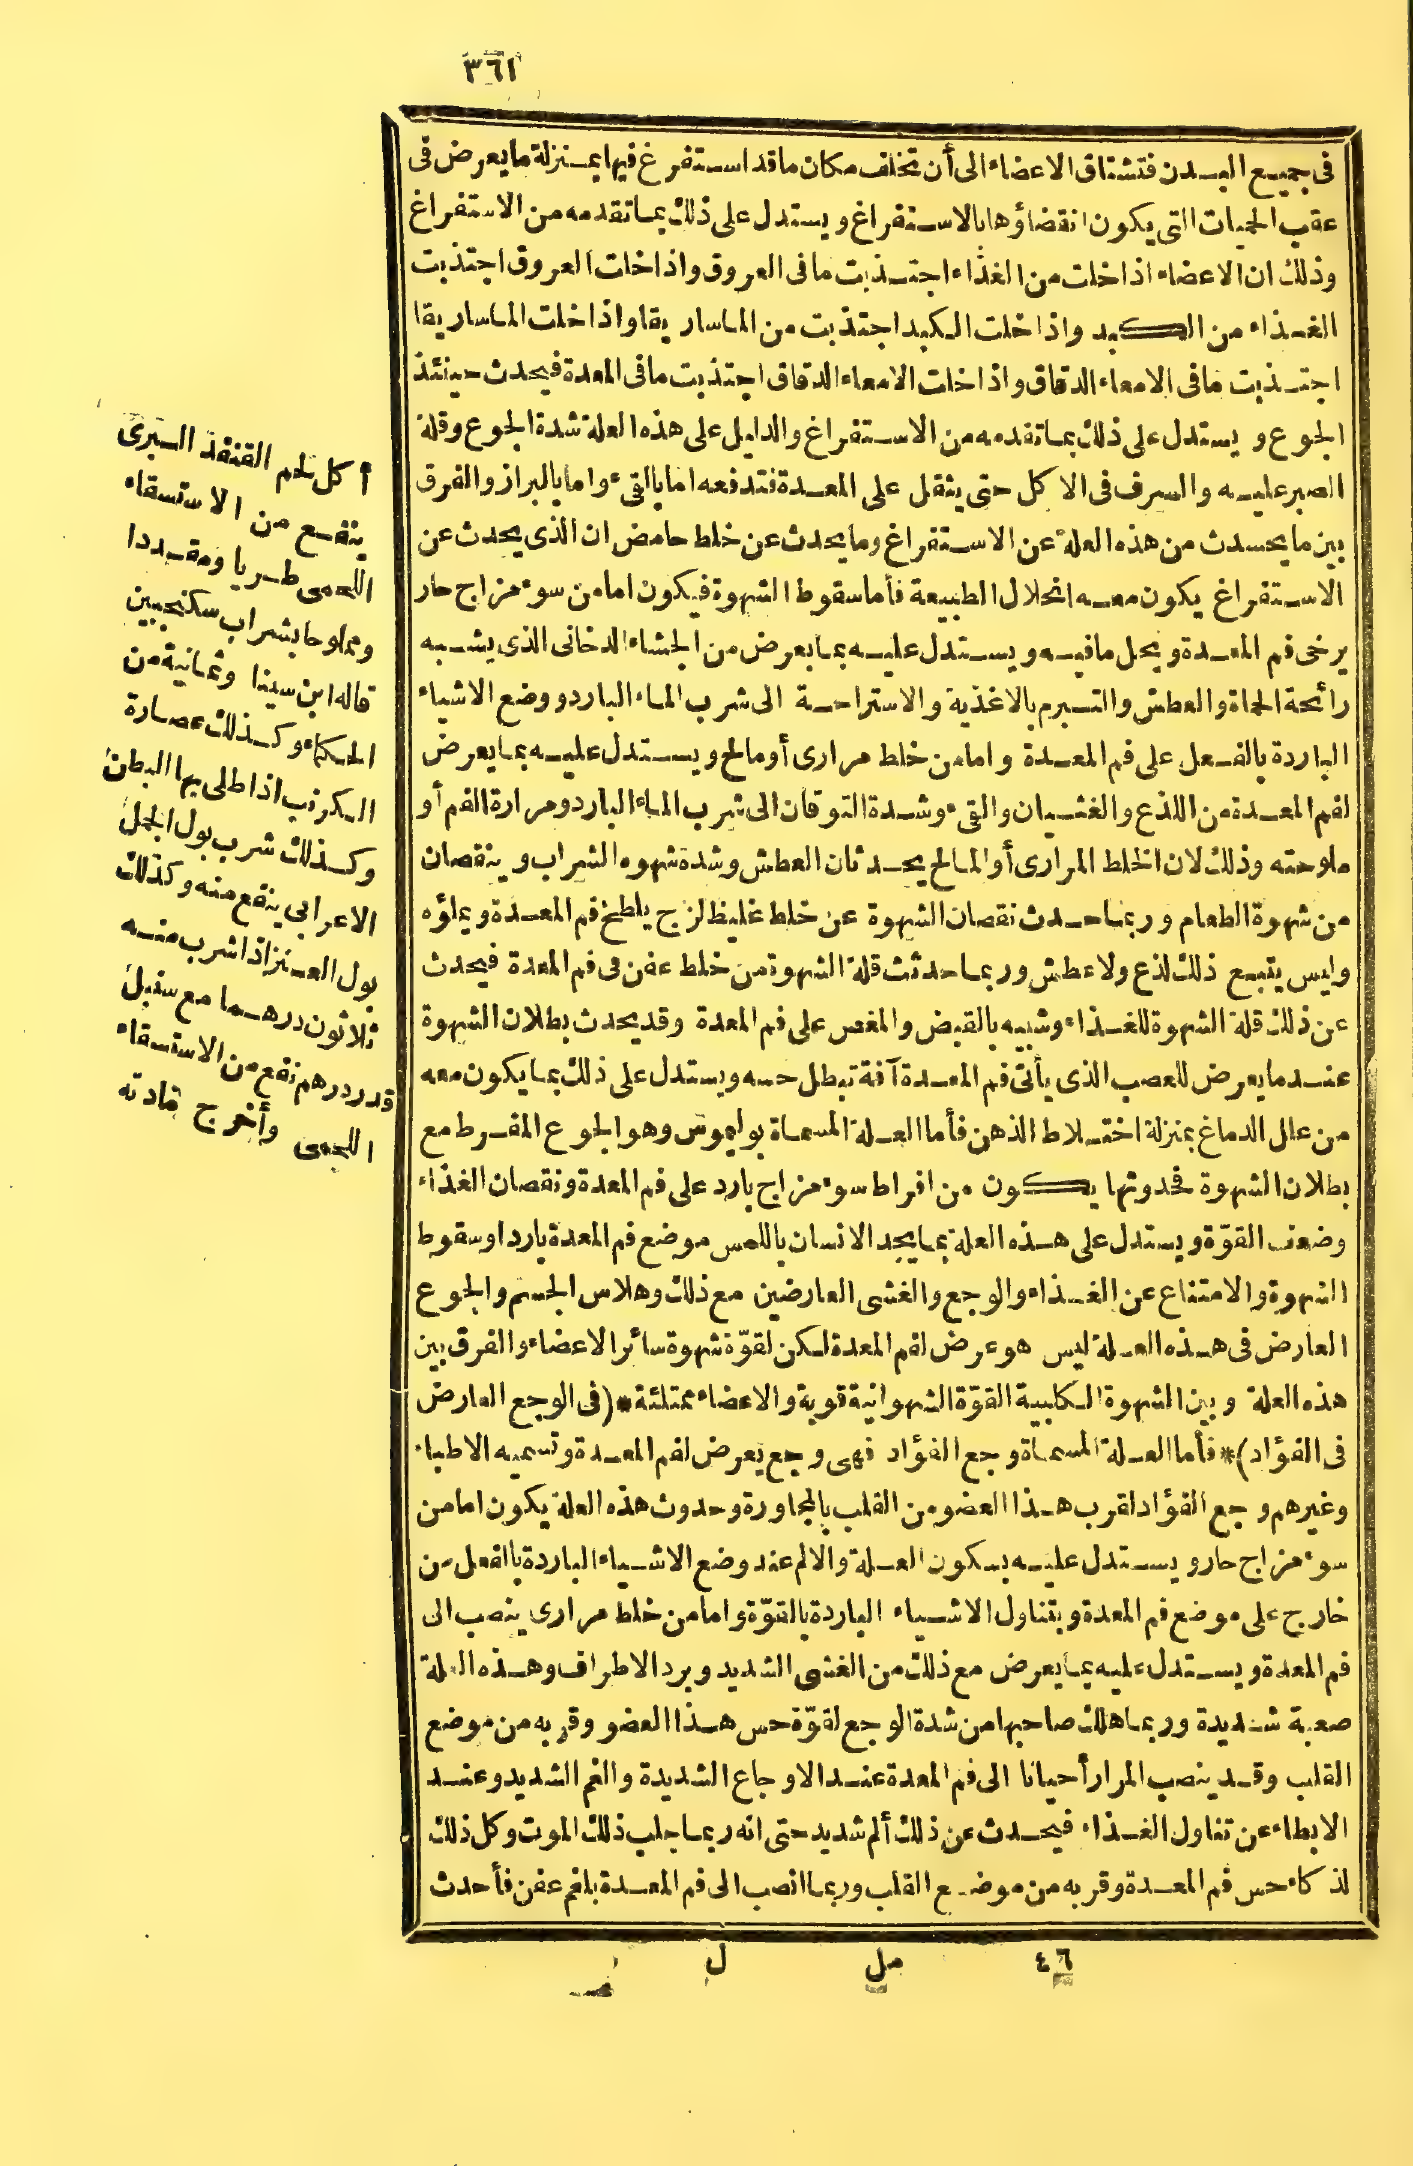 ٣٦١
فى جميع البدن فتشتاق الاعضاء الى أن تخلف مكان ما قد استفرغ فيها بمنزلة ما يعرض فى
عقب الحميات التى يكون انقضاؤها بالاستفراغ ويستدل على ذلك بما تقدمه من الاستفراغ
وذلك ان الاعضاء اذا خلت من الغذاء اجتذبت ما فى العروق واذا خلت العروق اجتذبت
الغذاء من الكبد واذا خلت الكبد اجتذبت من الماساريقا واذا خلت الماساريقا
اجتذبت ما فى الامعاء الدقاق واذا خلت الامعاء الدقاق اجتذبت ما فى المعدة فيحدث حينئذ
الجوع ويستدل على ذلك بما تقدمه من الاستفراغ والدليل على هذه العلة شدة الجوع وقلة
الصبر عليه والسرف فى الاكل حتى يثقل على المعدة فتدفعه اما بالقىء واما بالبراز والفرق
بين ما يحدث من هذه العلة عن الاستفراغ وما يحدث عن خلط حامض ان الذى يحدث عن
الاستفراغ يكون معه انحلال الطبيعة فأما سقوط الشهوة فيكون اما من سوء مزاج حار
يرخى فم المعدة ويحل ما فيه ويستدل عليه بما يعرض من الجشاء الدخانى الذى يشبه
رائحة الحماة والعطش والتبرم بالاغذية والاستراحة الى شرب الماء البارد ووضع الاشياء
الباردة بالفعل على فم المعدة واما من خلط مرارى أو مالح ويستدل عليه بما يعرض
لفم المعدة من اللذع والغثيان والقىء وشدة التوقان الى شرب الماء البارد ومرارة الفم أو
ملوحته وذلك لان الخلط المرارى أو المالح يحدثان العطش وشدة شهوة الشراب وينقصان
من شهوة الطعام وربما حدث نقصان الشهوة عن خلط غليظ لزج يلطخ فم المعدة ويملؤه
وليس يتبع ذلك لذع ولا عطش وربما حدثت قلة الشهوة من خلط عفن فى فم المعدة فيحدث
عن ذلك قلة الشهوة للغذاء وشبيه بالقبض والمغص على فم المعدة وقد يحدث بطلان الشهوة
عند ما يعرض للعصب الذى يأتى فم المعدة آفة تبطل حسه ويستدل على ذلك بما يكون معه
من علل الدماغ بمنزلة اختلاط الذهن فأما العلة المسماة بوليموس وهو الجوع المفرط مع
بطلان الشهوة فحدوثها يكون من افراط سوء مزاج بارد على فم المعدة ونقصان الغذاء
وضعف القوّة ويستدل على هذه العلة بما يجد الانسان باللمس موضع فم المعدة باردا وسقوط
الشهوة والامتناع عن الغذاء والوجع والغشى العارضين مع ذلك وهلاس الجسم والجوع
العارض فى هذه العلة ليس هو عرض لفم المعدة لكن لقوّة شهوة سائر الاعضاء والفرق بين
هذه العلة وبين الشهوة الكلبية القوّة الشهوانية قوية والاعضاء ممتلئة *(فى الوجع العارض
فى الفؤاد)* فأما العلة المسماة وجع الفؤاد فهى وجع يعرض لفم المعدة وتسميه الاطباء
وغيرهم وجع الفؤاد لقرب هذا العضو من القلب بالمجاورة وحدوث هذه العلة يكون اما من
سوء مزاج حار ويستدل عليه بسكون العلة والالم عند وضع الاشياء الباردة بالفعل من
خارج على موضع فم المعدة وبتناول الاشياء الباردة بالقوّة واما من خلط مرارى ينصب الى
فم المعدة ويستدل عليه بما يعرض مع ذلك من الغشى الشديد وبرد الاطراف وهذه العلة
صعبة شديدة وربما هلك صاحبها من شدة الوجع لقوّة حس هذا العضو وقربه من موضع
القلب وقد ينصب المرار أحيانا الى فم المعدة عند الاوجاع الشديدة والغم الشديد وعند
الابطاء عن تناول الغذاء فيحدث عن ذلك ألم شديد حتى انه ربما جلب ذلك الموت وكل ذلك
لذكاء حس فم المعدة وقربه من موضع القلب وربما انصب الى فم المعدة بلغم عفن فأحدث
٤٦ مل ل
أكل لحم القنفذ البرى
ينفع من الاستسقاء
اللحمى طريا ومقددا
ومملوحا بشراب سكنجبين
قاله ابن سينا وثمانية من
الحكماء وكذلك عصارة
الكرنب اذا طلى بها البطن
وكذلك شرب بول الجمل
الاعرابى ينفع منه وكذلك
بول العنز اذا شرب منه
ثلاثون درهما مع سنبل
قدر درهم نفع من الاستسقاء
اللحمى وأخرج مادته